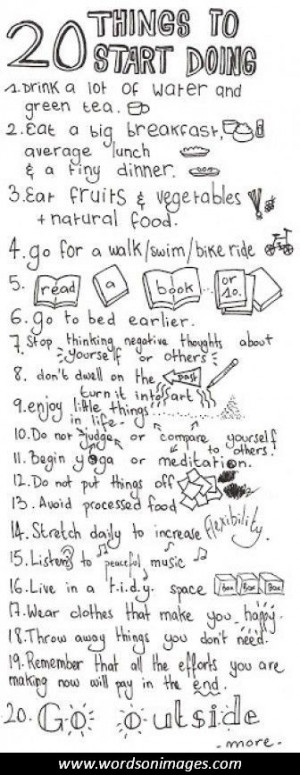 20 THINGS TO
START DOING
1. Drink a lot of water and
green tea.
2. Eat a big breakfast,
average lunch
& a tiny dinner.
3. Eat fruits & vegetables
+ natural food.
4. go for a walk/swim/bike ride
5. read a book.. or 10.
6. Go to bed earlier.
7. Stop thinking negative thoughts about
yourself or others
8. don't dwell on the past
turn it into art
9. enjoy little things
in life.
10. Do not judge or compare yourself
to others!
11. Begin yoga or meditation.
12. Do not put things off
13. Avoid processed food
14. Stretch daily to increase flexibility.
15. Listen to peaceful music
16. Live in a t.i.d.y. space Box Box Box
17. Wear clothes that make you happy.
18. Throw away things you don't need.
19. Remember that all the efforts you are
making now will pay in the end.
20. Go outside
- more -
www.wordsonimages.com